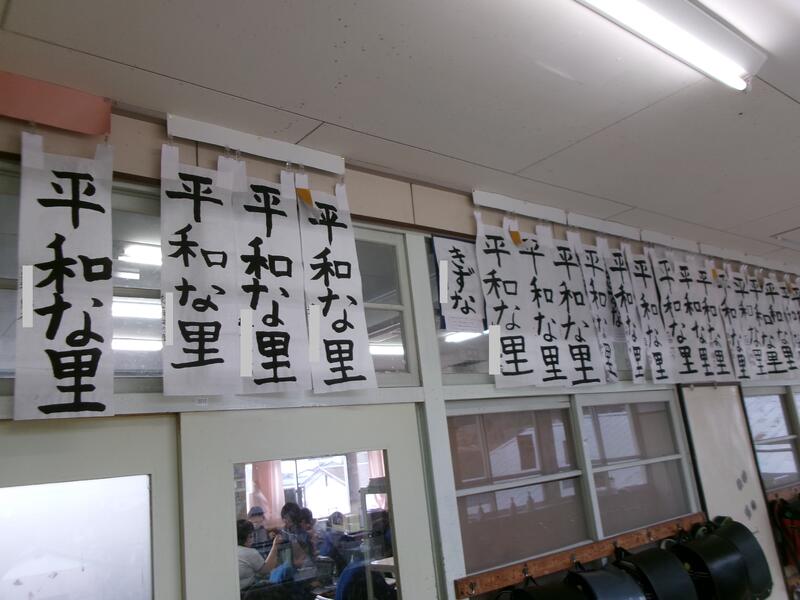 平和な里
平和な里
平和な里
平和な里
きずな
平和な里
平和な里
平和な里
平和な里
平和な里
平和な里
平和な里
平和な里
平和な里
平和な里
平和な里
平和な里
平和な里